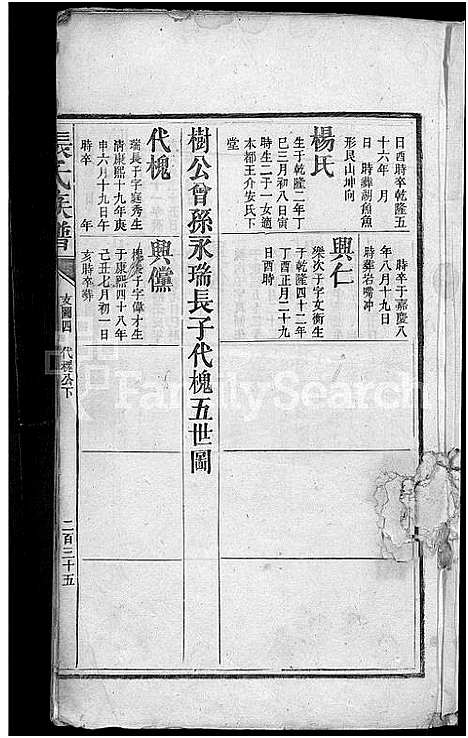 日酉時卒乾隆五
十六年 月
日 時葬胡魚魚
形艮山坤向
楊氏
生于乾隆二年丁
巳三月初八日寅
時生二子一女適
本都王介安氏下
堂
時卒于嘉慶八
年八月十九日
時葬岩嘴冲
興仁
樂次子字友衡生
于乾隆四十二年
丁酉正月二十九
日酉時
樹公曾孫永瑞長子代槐五世圖
代槐
瑞長子字庭秀生
清康熙十九年庚
申六月十九日午
時卒 年
興儻
槐長子字偉才生
于康熙四十八年
己丑七月初一日
亥時卒葬
張氏族譜
支圖四 代槐公下
二百三十五
FamilySearch